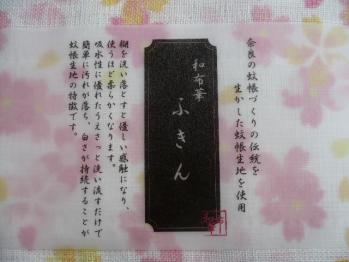 奈良の蚊帳づくりの伝統を
生かした蚊帳生地を使用
和布華
ふきん
糊を洗い落とすと優しい感触になり、
使うほど柔らかくなります。
吸水性に優れたうえさっと洗い流すだけで
簡単に汚れも落ち、白さが持続することが
蚊帳生地の特徴です。